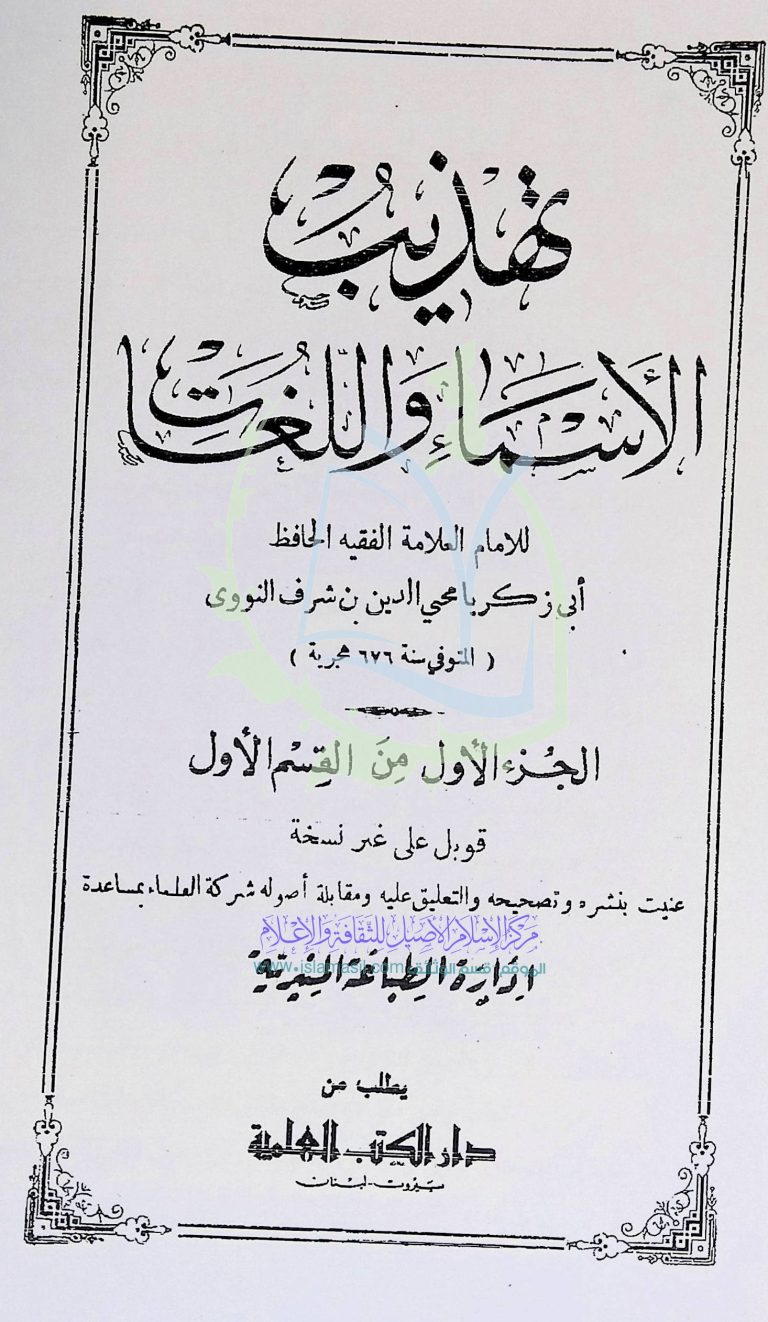 تهذيب
الأَسْمَاءِ وَاللُّغَات
للامام العلامة الفقيه الحافظ
أبي زكريا محيي الدين بن شرف النووى
( المتوفي سنة ٦٧٦ هجرية )
الجُزء الأول مِنَ القِسْم الأول
قوبل على غير نسخة
عنيت بنشره وتصحيحه والتعليق عليه ومقابلة أصوله شركة العلماء بمساعدة
مركز الإسلام الأصيل للثقافة والإعلام
الموقع: قسم الوثائق www.islamasil.com
إدارة الطباعة المنيرية
يطلب من
دار الكتب العلمية
بيروت - لبنان